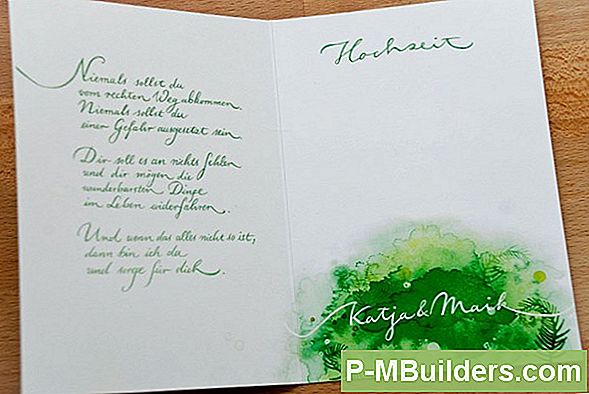 Niemals sollst du
vom rechten Weg abkommen.
Niemals sollst du
einer Gefahr ausgesetzt sein.
Dir soll es an nichts fehlen
und dir mögen die
wunderbarsten Dinge
im Leben widerfahren.
Und wenn das alles nicht so ist,
dann bin ich da
und sorge für dich.
Hochzeit
Katja & Maik
P-MBuilders.com